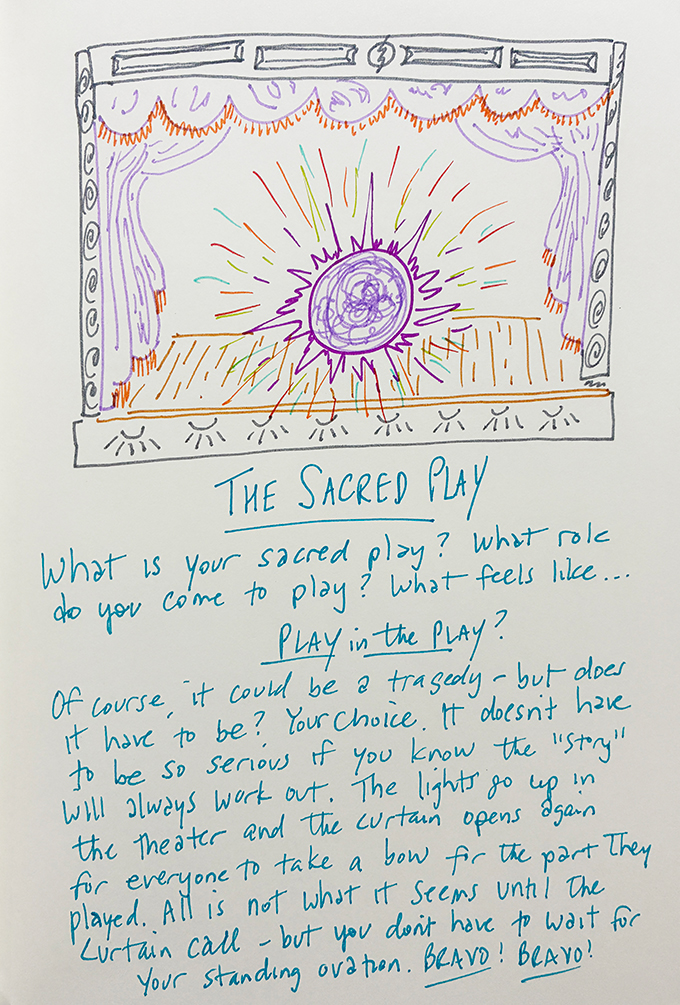 THE SACRED PLAY
What is your sacred play? What role
do you come to play? What feels like...
PLAY in the PLAY?
Of course, it could be a tragedy - but does
it have to be? Your choice. It doesn't have
to be so serious if you know the "story"
will always work out. The lights go up in
the theater and the curtain opens again
for everyone to take a bow for the part They
played. All is not what it seems until the
curtain call - but you don't have to wait for
your standing ovation. BRAVO! BRAVO!